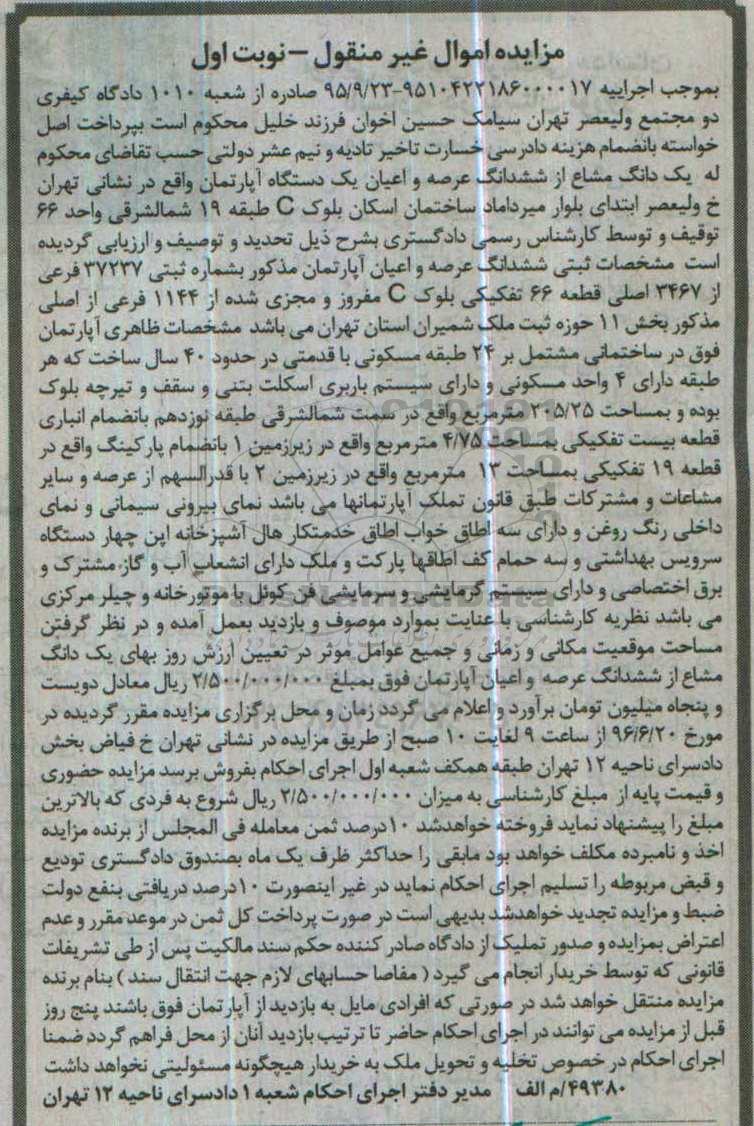 مزایده اموال غیر منقول – نوبت اول
بموجب اجراییه ۹۵۱۰۴۲۲۱۸۶۰۰۰۰۱۷–۹۵/۹/۲۳ صادره از شعبه ۱۰۱۰ دادگاه کیفری
دو مجتمع ولیعصر تهران سیامک حسین اخوان فرزند خلیل محکوم است بپرداخت اصل
خواسته بانضمام هزینه دادرسی خسارت تاخیر تادیه و نیم عشر دولتی حسب تقاضای محکوم
له یک دانگ مشاع از ششدانگ عرصه و اعیان یک دستگاه آپارتمان واقع در نشانی تهران
خ ولیعصر ابتدای بلوار میرداماد ساختمان اسکان بلوک C طبقه ۱۹ شمالشرقی واحد ۶۶
توقیف و توسط کارشناس رسمی دادگستری بشرح ذیل تحدید و توصیف و ارزیابی گردیده
است مشخصات ثبتی ششدانگ عرصه و اعیان آپارتمان مذکور بشماره ثبتی ۳۷۲۳۷ فرعی
از ۳۴۶۷ اصلی قطعه ۶۶ تفکیکی بلوک C مفروز و مجزی شده از ۱۱۴۴ فرعی از اصلی
مذکور بخش ۱۱ حوزه ثبت ملک شمیران استان تهران می باشد مشخصات ظاهری آپارتمان
فوق در ساختمانی مشتمل بر ۲۴ طبقه مسکونی با قدمتی در حدود ۴۰ سال ساخت که هر
طبقه دارای ۴ واحد مسکونی و دارای سیستم باربری اسکلت بتنی و سقف و تیرچه بلوک
بوده و بمساحت ۲۰۵/۲۵ مترمربع واقع در سمت شمالشرقی طبقه نوزدهم بانضمام انباری
قطعه بیست تفکیکی بمساحت ۴/۷۵ مترمربع واقع در زیرزمین ۱ بانضمام پارکینگ واقع در
قطعه ۱۹ تفکیکی بمساحت ۱۳ مترمربع واقع در زیرزمین ۲ با قدرالسهم از عرصه و سایر
مشاعات و مشترکات طبق قانون تملک آپارتمانها می باشد نمای بیرونی سیمانی و نمای
داخلی رنگ روغن و دارای سه اطاق خواب اطاق خدمتکار هال آشپزخانه اپن چهار دستگاه
سرویس بهداشتی و سه حمام کف اطاقها پارکت و ملک دارای انشعاب آب و گاز مشترک و
برق اختصاصی و دارای سیستم گرمایشی و سرمایشی فن کوئل با موتورخانه و چیلر مرکزی
می باشد نظریه کارشناسی با عنایت بموارد موصوف و بازدید بعمل آمده و در نظر گرفتن
مساحت موقعیت مکانی و زمانی و جمیع عوامل موثر در تعیین ارزش روز بهای یک دانگ
مشاع از ششدانگ عرصه و اعیان آپارتمان فوق بمبلغ ۲/۵۰۰/۰۰۰/۰۰۰ ریال معادل دویست
و پنجاه میلیون تومان برآورد و اعلام می گردد زمان و محل برگزاری مزایده مقرر گردیده در
مورخ ۹۶/۶/۲۰ از ساعت ۹ لغایت ۱۰ صبح از طریق مزایده در نشانی تهران خ فیاض بخش
دادسرای ناحیه ۱۲ تهران طبقه همکف شعبه اول اجرای احکام بفروش برسد مزایده حضوری
و قیمت پایه از مبلغ کارشناسی به میزان ۲/۵۰۰/۰۰۰/۰۰۰ ریال شروع به فردی که بالاترین
مبلغ را پیشنهاد نماید فروخته خواهدشد ۱۰درصد ثمن معامله فی المجلس از برنده مزایده
اخذ و نامبرده مکلف خواهد بود مابقی را حداکثر ظرف یک ماه بصندوق دادگستری تودیع
و قبض مربوطه را تسلیم اجرای احکام نماید در غیر اینصورت ۱۰درصد دریافتی بنفع دولت
ضبط و مزایده تجدید خواهدشد بدیهی است در صورت پرداخت کل ثمن در موعد مقرر و عدم
اعتراض بمزایده و صدور تملیک از دادگاه صادر کننده حکم سند مالکیت پس از طی تشریفات
قانونی که توسط خریدار انجام می گیرد ( مفاصا حسابهای لازم جهت انتقال سند ) بنام برنده
مزایده منتقل خواهد شد در صورتی که افرادی مایل به بازدید از آپارتمان فوق باشند پنج روز
قبل از مزایده می توانند در اجرای احکام حاضر تا ترتیب بازدید آنان از محل فراهم گردد ضمنا
اجرای احکام در خصوص تخلیه و تحویل ملک به خریدار هیچگونه مسئولیتی نخواهد داشت
۴۹۳۸۰/م الف مدیر دفتر اجرای احکام شعبه ۱ دادسرای ناحیه ۱۲ تهران